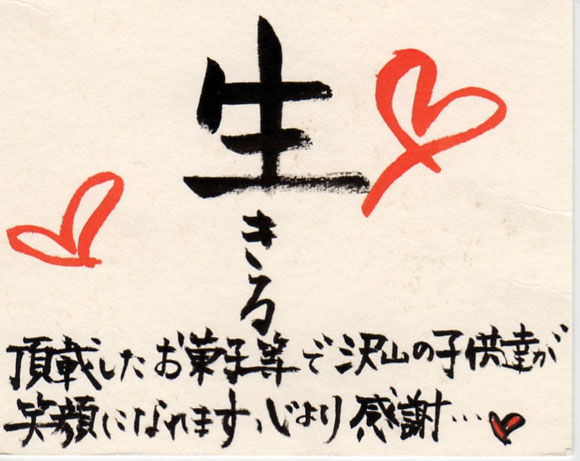 生
きる
頂載したお菓子等で沢山の子供達が
笑顔になれます、心より感謝…